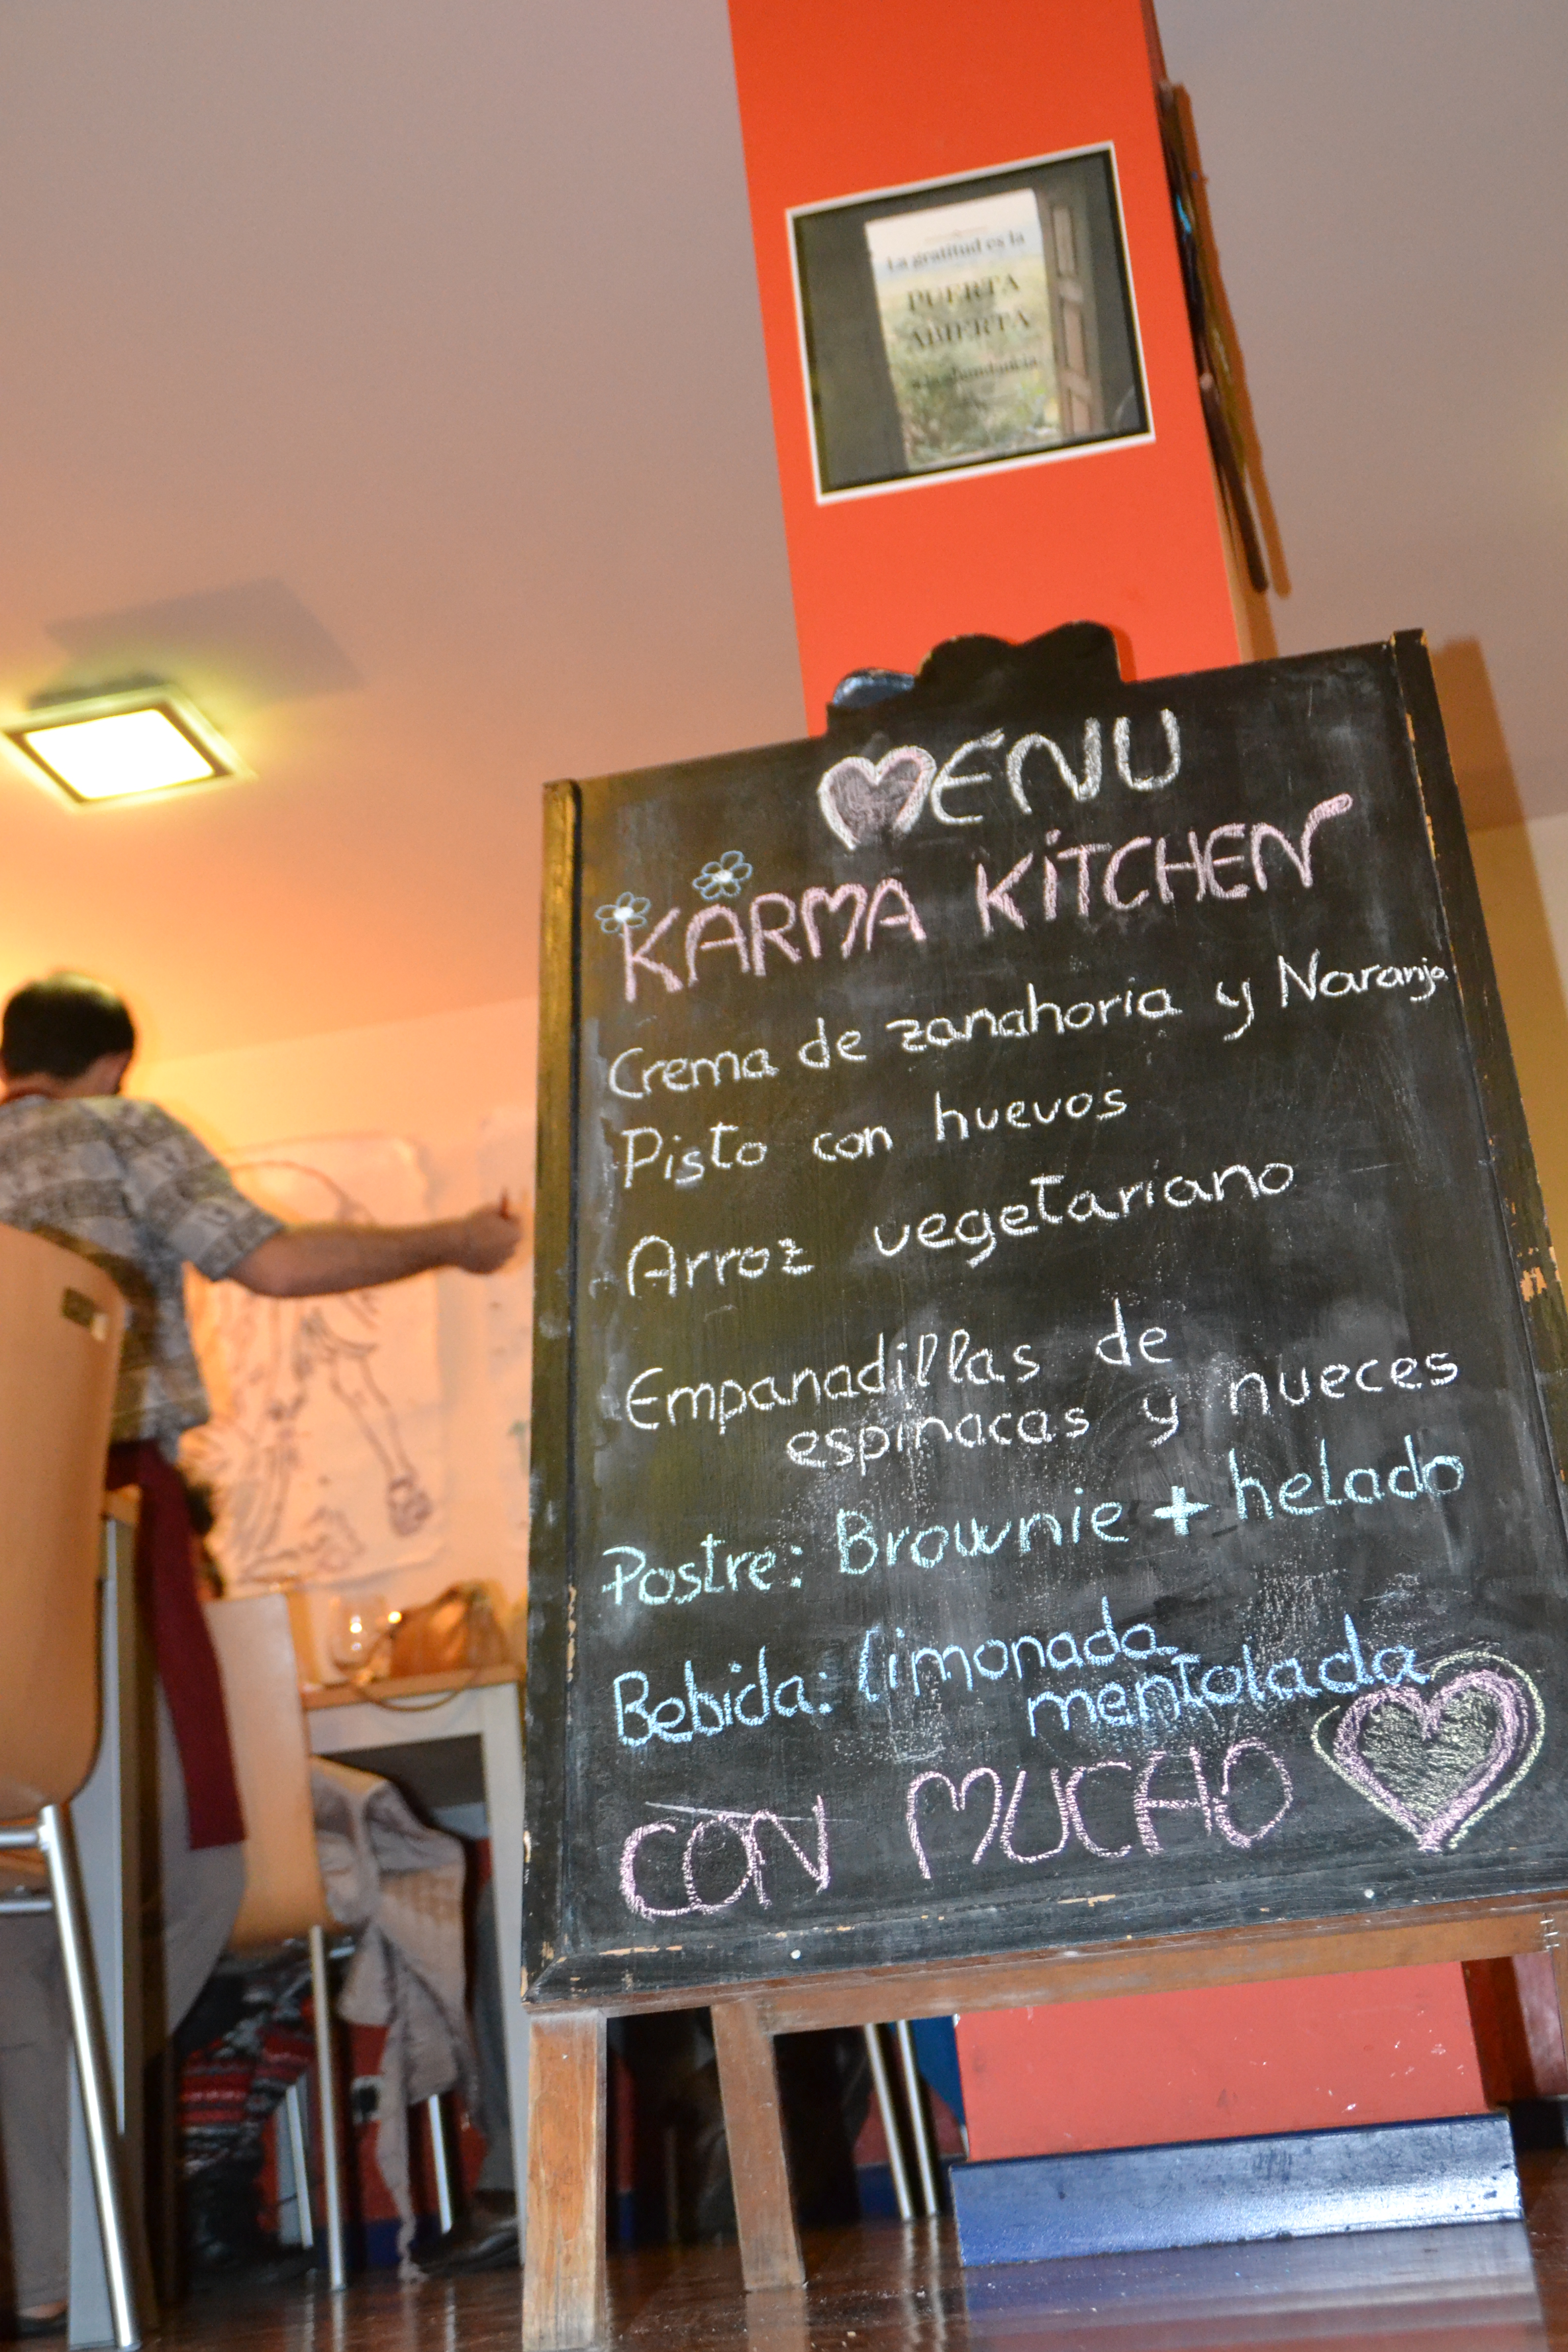 La gratitud es la
PUERTA
ABIERTA
a la abundancia
MENU
KARMA KITCHEN
Crema de zanahoria y Naranja
Pisto con huevos
Arroz vegetariano
Empanadillas de
espinacas y nueces
Postre: Brownie + helado
Bebida: limonada
mentolada
CON MUCHO